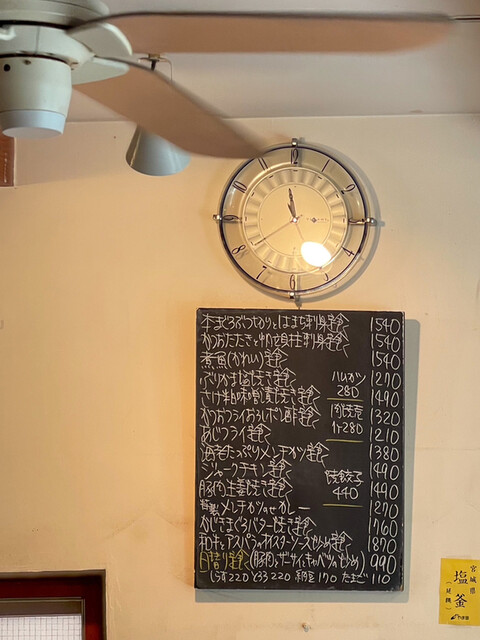 本まぐろぶつきりとはまち刺身定食 1540
かつおたたきと帆立貝柱刺身定食 1540
煮魚(かれい)定食 1540
ぶりかま塩焼き定食 1270
ハムカツ 280
さけ粕味噌漬焼き定食 1490
かつおフライおろしポン酢定食 1320
肉焼売 1ヶ280
あじフライ定食 1210
海老たっぷりメンチカツ定食 1380
ジャークチキン定食 1490
焼餃子 440
豚肉生姜焼き定食 1490
特製メンチカツのせカレー 1270
かじきまぐろバター焼き定食 1760
和牛とアスパラのオイスターソース炒め定食 1870
日替り定食 (豚肉とザーサイとキャベツのいため) 990
しらす220 とろろ220 納豆170 たまご110
宮城県
塩釜